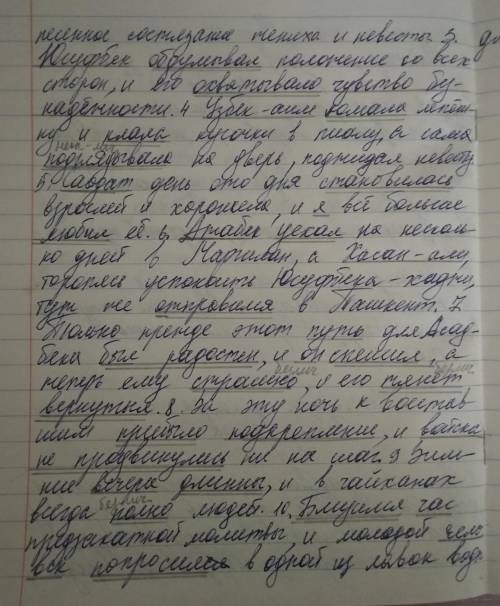 песенное состязание жениха и невесты 3.
Юсуфбек обдумывал положение со всех
сторон, и его охватывало чувство бу-
надёжности. 4 Узбек-аим ломала лепёш-
ку и клала кусочки в пиалу, а сама
подглядывала на дверь, поджидая невесту
5. день ото дня становилась
взрослей и хорошела, и я всё больше
любил её. 6, Атабек уехал на несколь-
ко дней в Маргилан, а Хасан-али,
торопясь успокоить Юсуфбека-хаджи,
тут же отправился в Ташкент. 7
Только прежде этот путь для Асад-
бека был радостен, и он спешил, а
безлич. безлич.
теперь ему страшно, и его тянет
вернуться. 8. За эту ночь к восстав-
шим прибыло подкрепление, и войска
не продвинулись ни на шаг. 9 Зим-
ние вечера длинны, и в чайханах
безлич.
всегда полно людей. 10, Близился час
предзакатной молитвы, и молодой чело-
век попросился в одной из лавок воды